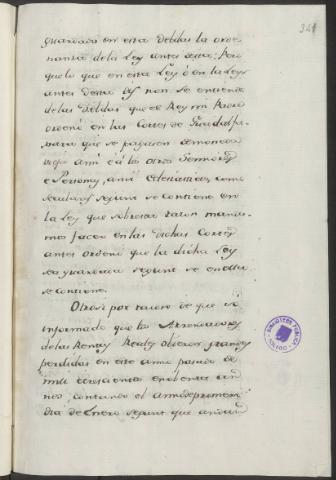 341
guardado en esta debdas la orde-
nanza dela Ley antes desta: Pero
que lo que en esta Ley ó en la Ley
antes desta non se entiende
delas debdas que el Rey mi Padre
ordenó en las Cortes de Guadalfa-
xara que se pagasen
á los otros Sennores
e Personas, ansi eclesiasticas, como
seculares segunt se contiene en
la Ley que sobresta razon manda-
mos facer en las dichas Cortes
antes ordenó que la dicha Ley
sea guardada segunt se en ella
se contiene.
Otrosi por razon de que é
informado que los Arrendadores
delas Rentas Reales obieron grandes
perdidas en este anno pasado de
mill trescientos e nobenta an-
nos, contando el anno de primero
dia de Enero segunt que
BIBLIOTECA PUBLICA
TOLEDO